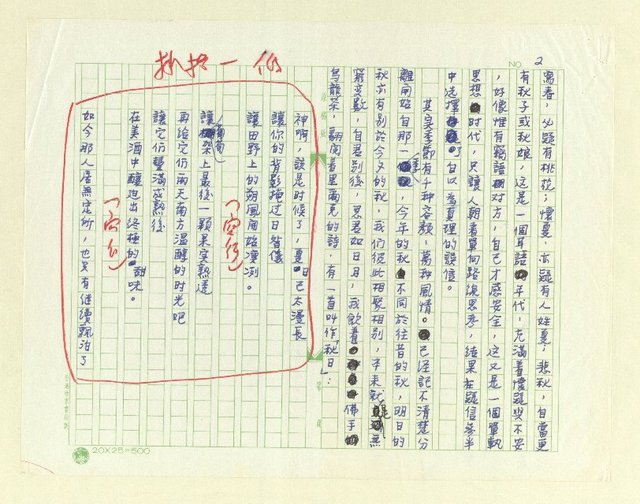 抄抄一份
NO. 2
寓春,必題有桃花;懷夏,亦疑有人姓夏;悲秋,自當更
有秋子或秋娘,這是一個耳語年代,充滿着懷疑與不安
,好像惟有竊語對方,自己才感安全,這又是一個單軌
思想時代,只讓人朝着單向路線思考,結果在疑信參半
中选擇可以當真理的誤信。
其实季節有千种容顏,萬种風情。已經記不清楚分
離開始自那一季,今年的秋不同於往昔的秋,明日的
秋亦有別於今夕的秋,我們彼此相聚相別,本来就是無
窮变數,自君別後,思君如日月,我飲着佛手
烏龍茶,翻閱着里尔克的詩,有一首叫作「秋日」:
神啊,該是时候了,夏日已太漫長
讓你的背影掩过日晷儀
讓田野上的朔風開始凜冽。
(空行)
讓葡萄架上最後一顆果实熟透
再给它们兩天南方溫醇的时光吧
讓它们豐滿成熟後
在美酒中釀造出終極的甜味。
(空行)
如今那人居無定所,也只有继續飄泊了
20×25=500